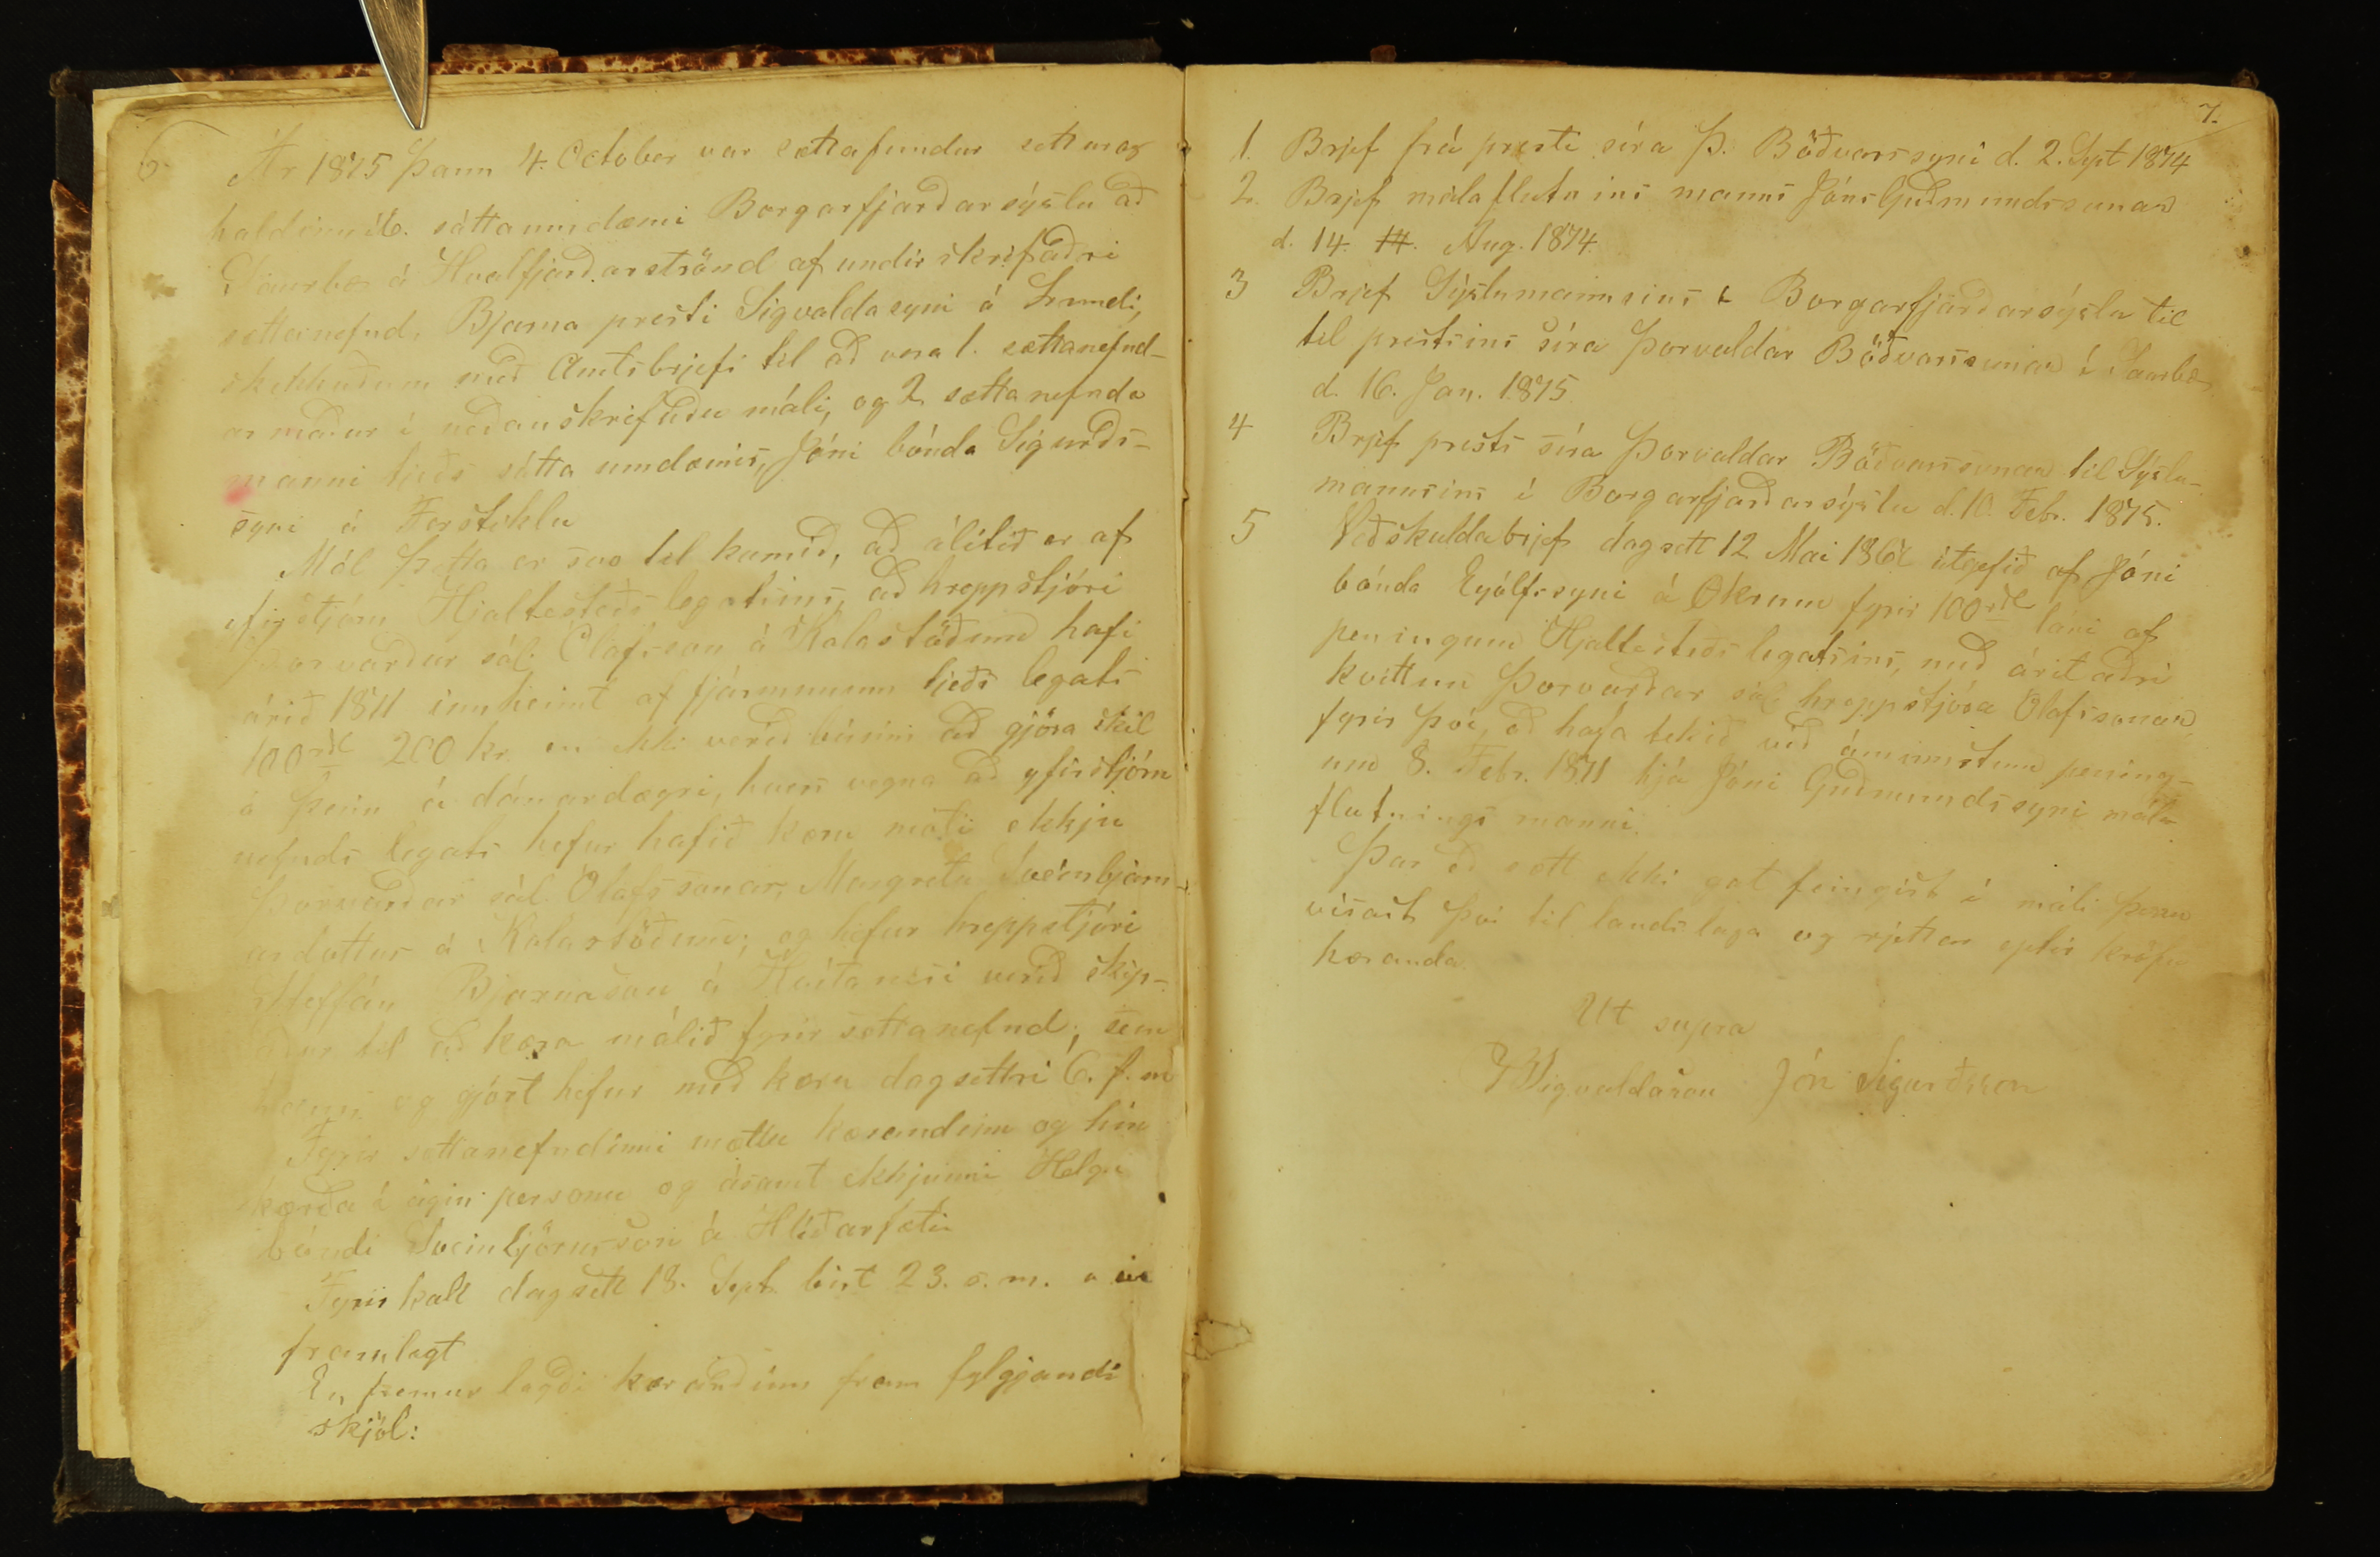 6.
Ár 1875 þann 4. October var sættafundur settur og
haldinn í 6. sáttaumdæmi Borgarfjarðarsýslu að
Saurbæ á Hvalfjarðarströnd af undirskrifaðri
sættanefnd, Bjarna presti Sigvaldasyni á Lundi,
skikkuðum með Amtsbrjefi til að vera 1. sættanefnd-
ar maður í neðanskrifuðu máli, og 2 sættanefnda
manni tjeðs sátta umdæmis, Jóni bónda Sigurðs-
syni á Ferstiklu
Mál þetta er svo til komið, að álitið er af
yfirstjórn Hjaltesteðs legatsins, að hreppstjóri
Þorvarður sál. Olafsson á Kalastöðum hafi
árið 1871 innheimt af fjármunum tjeðs legats
100 rdl 200 kr en ekki verið búinn að gjöra skil
á þeim á dánardægri, hvers vegna að yfirstjórn
nefnds legats hefur hafið kæru móti ekkju
Þorvarðar sál. Olafssonar, Margretu Sveinbjarn-
ardottur á Kalastöðum; og hefur hreppstjóri
Steffán Bjarnason á Hvítanesi verið skip-
aður til að kæra málið fyrir sættanefnd, sem
hann og gjört hefur með kæru dagsettri 6. f. m
Fyrir sættanefndinni mættu kærandinn og hin
kærða í eigin persónu og ásamt ekkjunni Helgi
bóndi Sveinbjörnsson á Hlíðarfæti
Fyrirkall dagsett 18. Sept birt 23. s. m. var
framlagt
En fremur lagði kærandinn fram fylgjandi
skjöl:
7.
1. Brjef frá presti síra Þ. Böðvarssyni d. 2. Sept 1874
2. Brjef málaflutnins manns Jóns Guðmundssunar
d. 14. Aug. 1874.
3 Brjef Sýslumannsins í Borgarfjarðarsýslu til
til prestsins síra Þorvaldar Böðvarssunar í Saurbæ
d. 16. Jan. 1875
4 Brjef prests síra Þorvaldar Böðvarssunar til Sýslu-
mannsins í Borgarfjarðarsýslu d. 10. Febr. 1875.
5 Veðskuldabrjef dagsett 12 Mai útgefið af Jóni
bónda Eyólfssyni á Okrum fyrir 100 rdl láni af
peningum Hjaltesteðs legatsins, með áritaðri
kvittun Þorvarðar sál. hreppstjóra Olafssonar,
fyrir því, að hafa tekið við áminnstum pening-
um 8. Febr. 1871 hjá Jóni Guðmundssyni mála-
flutnings manni.
Þar eð sætt ekki gat feingist í máli þessu
vísast því til landslaga og rjettar eptir kröfu
kæranda.
Ut supra
B Sigvaldason Jón Sigurðsson